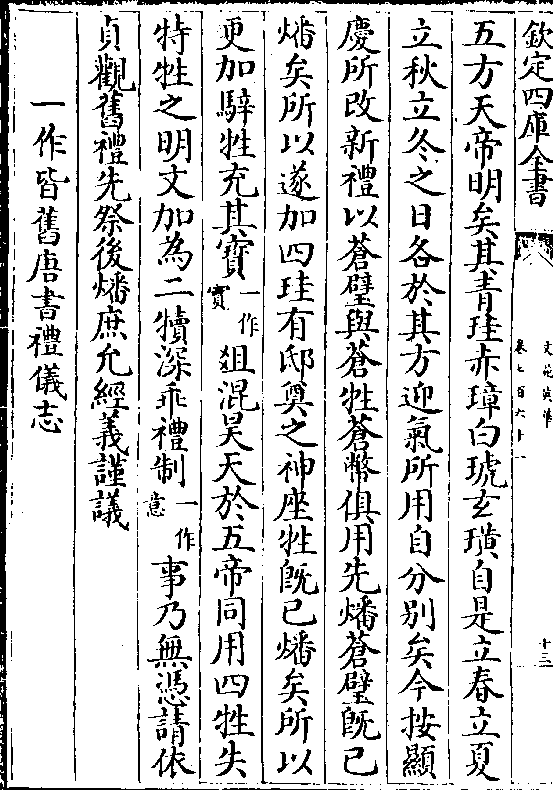 欽定四庫全書
文苑英華
卷七百六十一
十三
五方天帝明矣其青珪赤璋白琥玄璜自是立春立夏
立秋立冬之日各於其方迎氣所用自分别矣今按顯
慶所改新禮以蒼璧與蒼牲蒼幣俱用先燔蒼璧既已
燔矣所以遂加四珪有邸奠之神座牲既已燔矣所以
更加騂牲充其寶一作實俎混昊天於五帝同用四牲失
特牲之明文加為二犢深乖禮制一作意事乃無憑請依
貞觀舊禮先祭後燔庶允經義謹議
一作皆舊唐書禮儀志